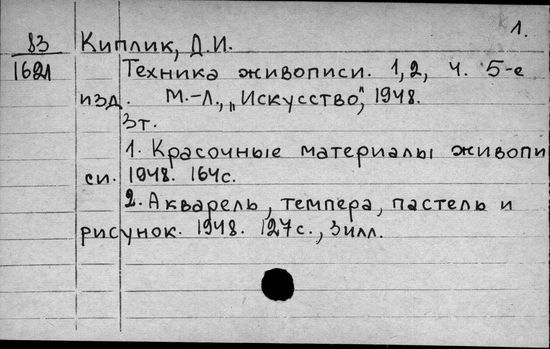 1.
83 Киплик, Д.И.
1621 Техника живописи. 1,2, ч. 5-е
изд. М.-Л., „Искусство", 1948.
3т.
1. Красочные материалы живопи
си. 1948. 164с.
2. Акварель, темпера, пастель и
рисунок. 1948. 127с., 3илл.